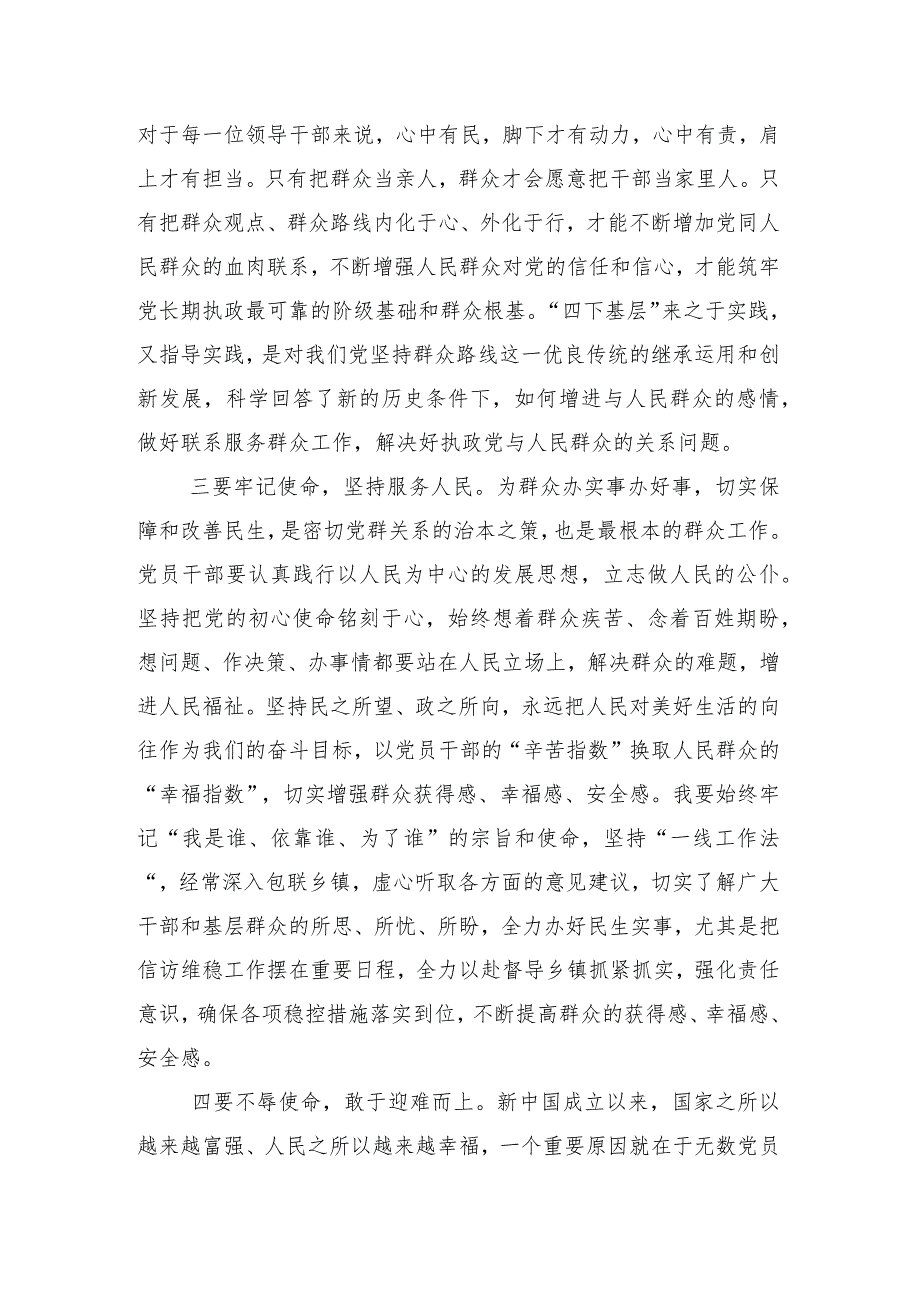 对于每一位领导干部来说，心中有民，脚下才有动力，心中有责，肩
上才有担当。只有把群众当亲人，群众才会愿意把干部当家里人。只
有把群众观点、群众路线内化于心、外化于行，才能不断增加党同人
民群众的血肉联系，不断增强人民群众对党的信任和信心，才能筑牢
党长期执政最可靠的阶级基础和群众根基。“四下基层”来之于实践，
又指导实践，是对我们党坚持群众路线这一优良传统的继承运用和创
新发展，科学回答了新的历史条件下，如何增进与人民群众的感情，
做好联系服务群众工作，解决好执政党与人民群众的关系问题。
三要牢记使命，坚持服务人民。为群众办实事办好事，切实保
障和改善民生，是密切党群关系的治本之策，也是最根本的群众工作。
党员干部要认真践行以人民为中心的发展思想，立志做人民的公仆。
坚持把党的初心使命铭刻于心，始终想着群众疾苦、念着百姓期盼，
想问题、作决策、办事情都要站在人民立场上，解决群众的难题，增
进人民福祉。坚持民之所望、政之所向，永远把人民对美好生活的向
往作为我们的奋斗目标，以党员干部的“辛苦指数”换取人民群众的
“幸福指数”，切实增强群众获得感、幸福感、安全感。我要始终牢
记“我是谁、依靠谁、为了谁”的宗旨和使命，坚持“一线工作法
“，经常深入包联乡镇，虚心听取各方面的意见建议，切实了解广大
干部和基层群众的所思、所忧、所盼，全力办好民生实事，尤其是把
信访维稳工作摆在重要日程，全力以赴督导乡镇抓紧抓实，强化责任
意识，确保各项稳控措施落实到位，不断提高群众的获得感、幸福感、
安全感。
四要不辱使命，敢于迎难而上。新中国成立以来，国家之所以
越来越富强、人民之所以越来越幸福，一个重要原因就在于无数党员